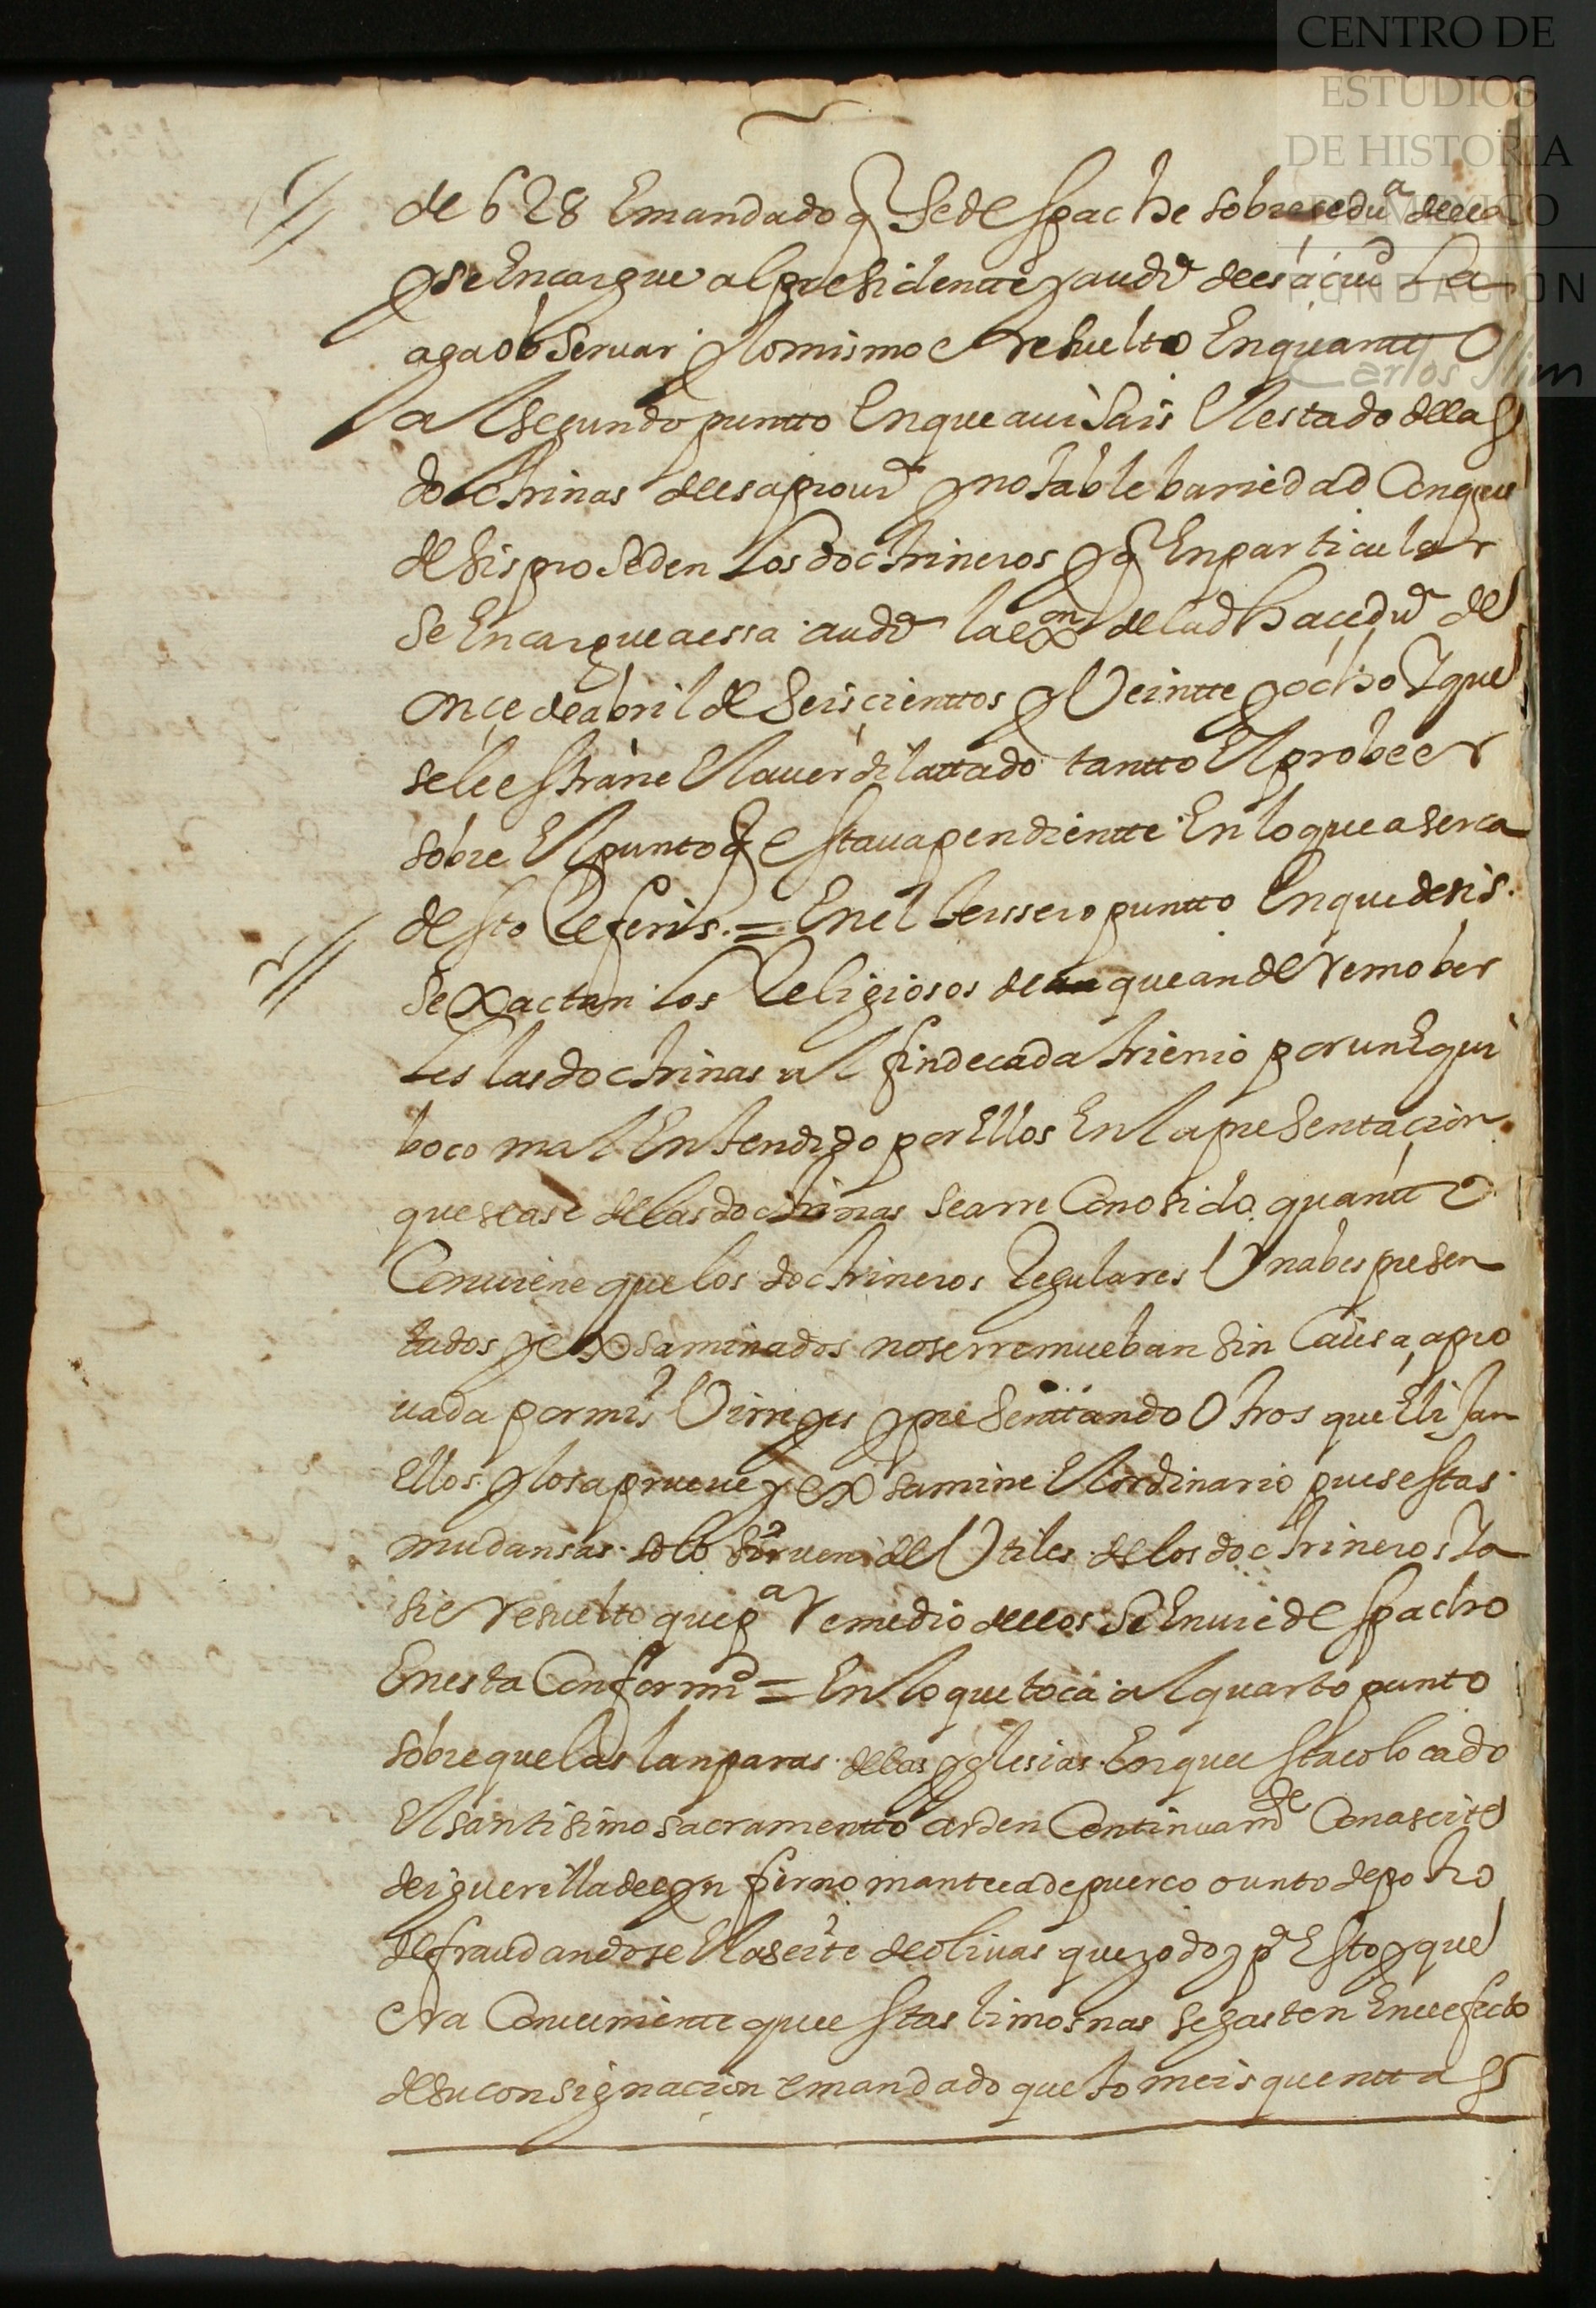 CENTRO DE
ESTUDIOS
DE HISTORIA
DE MEXICO
FUNDACIÓN
Carlos Slim
de 628 Emandado q Se despache sobresedua della
y se Encargue al presidentte y audia de esa ciud La
aga observar y lo mismo e resuelto En quantto
a l segundo puntto En que auisais El estado de las
doctrinas de esa proua y notable bariedad Con que
desis proseden los doctrineros y q En particular
Se Encargue a essa audia la exon de la dha cedua de
onçe de abril de Seisçienttos y Veintte y ocho Y que
se le estrañe El auer dilattado tantto El probeer
sobre El punto q estaua pendientte En lo que aserca
desto Referis = En el terssero puntto En que desis
se xactan los Religiosos de que an de remober
les las doctrinas al fin de cada trienio por un Equi
boco mal Entendido por Ellos En la presentaçion
que se ase de las doctrinas se a rreConosido quantto
Conuiene que los doctrineros Regulares Vna bes presen
tados y exsaminados no se rremueban sin Causa apro
uada por mis Virreyes y presenttando Otros que Elijan
ellos y los aprueue y exsamine El ordinario pues estas
mudansas solo siruen de Vtiles de los doctrineros Ya
sie resuelto que pa remedio dellos Se Enuie despacho
En esta Conformd = En lo que toca al quarto punto
sobre que las lanparas de las yglesias En que esta colocado
El santisimo sacramentto arden Continuamde Con aseite
de iguerilla de ynfierno manteca de puerco o unto de potro
defraudandose El aseite de oliuas que yo doy pa Esto y que
era Conueniente que estas limosnas se gasten En el efecto
de su consignaçion e mandado que tomeis quentta